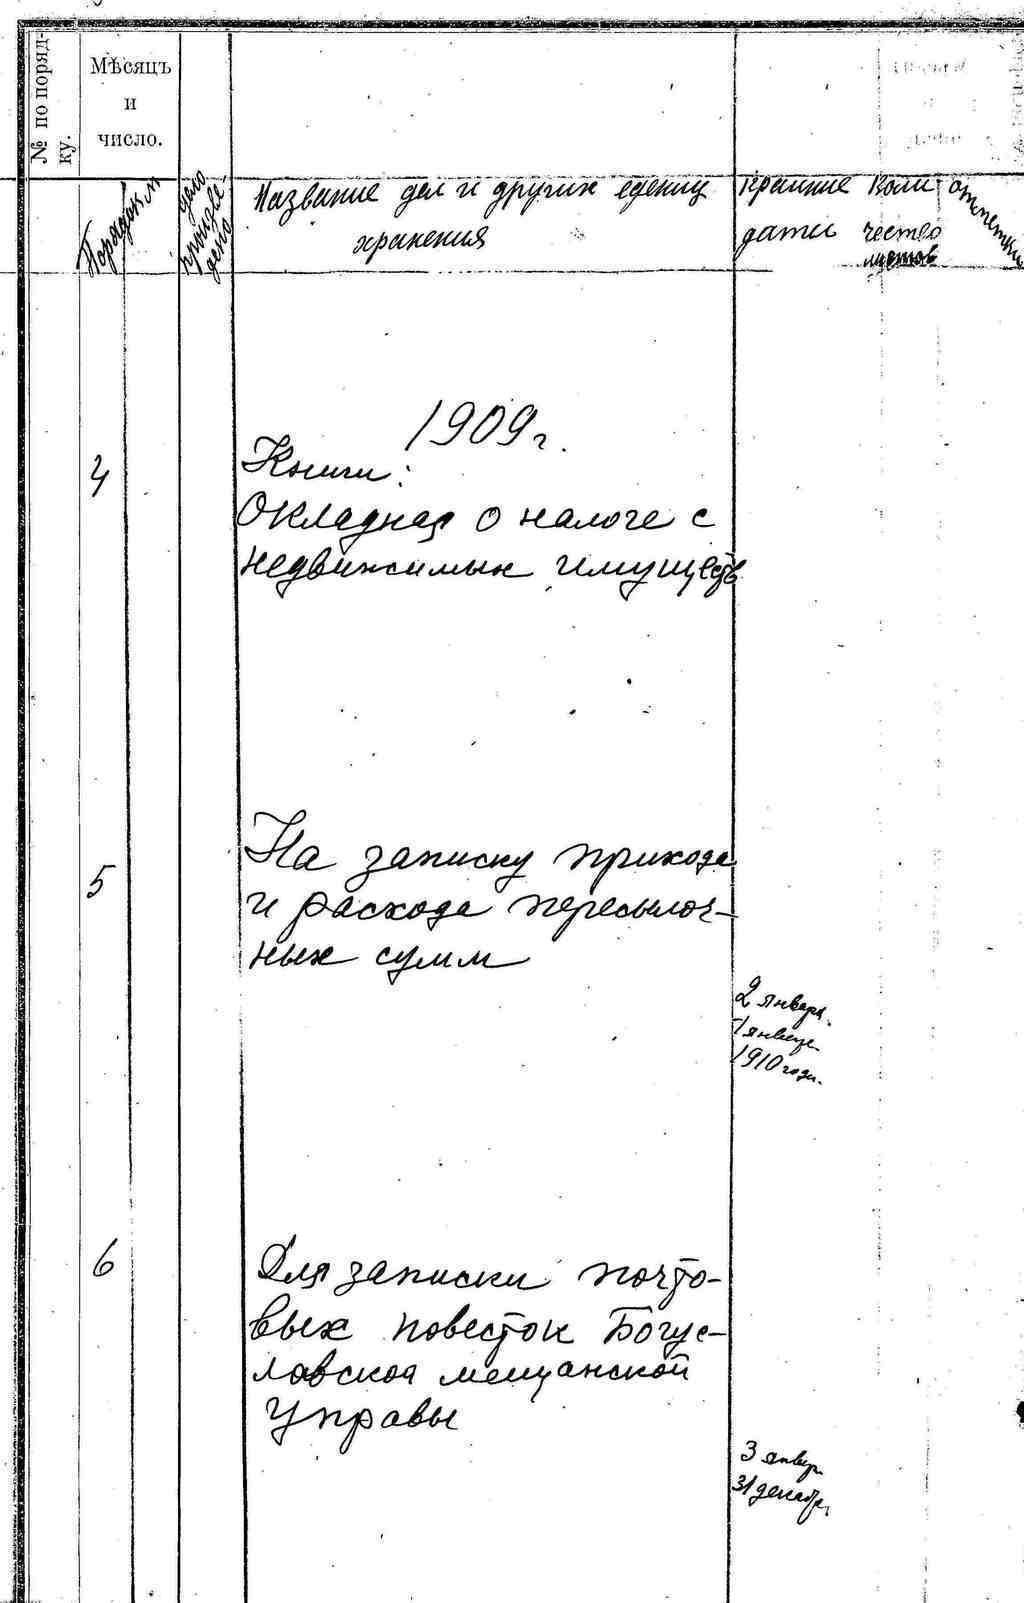 № по поряд-
ку.
Мѣсяцъ
и
число.
Порядков
дело
произве
дено
Название дел и других едениц
хранения
крайние
даты
Коли
чество
листов
отметки
1909 г.
4
Книги:
Окладная о налоге с
недвижимых имуществ
5
На записку прихода
и расхода пересылоч-
ных сумм
2 января
1 января
1910 года.
6
Для записки почто-
вых повесток Богус-
лавской мещанской
Управы
3 январ.
31 декабря